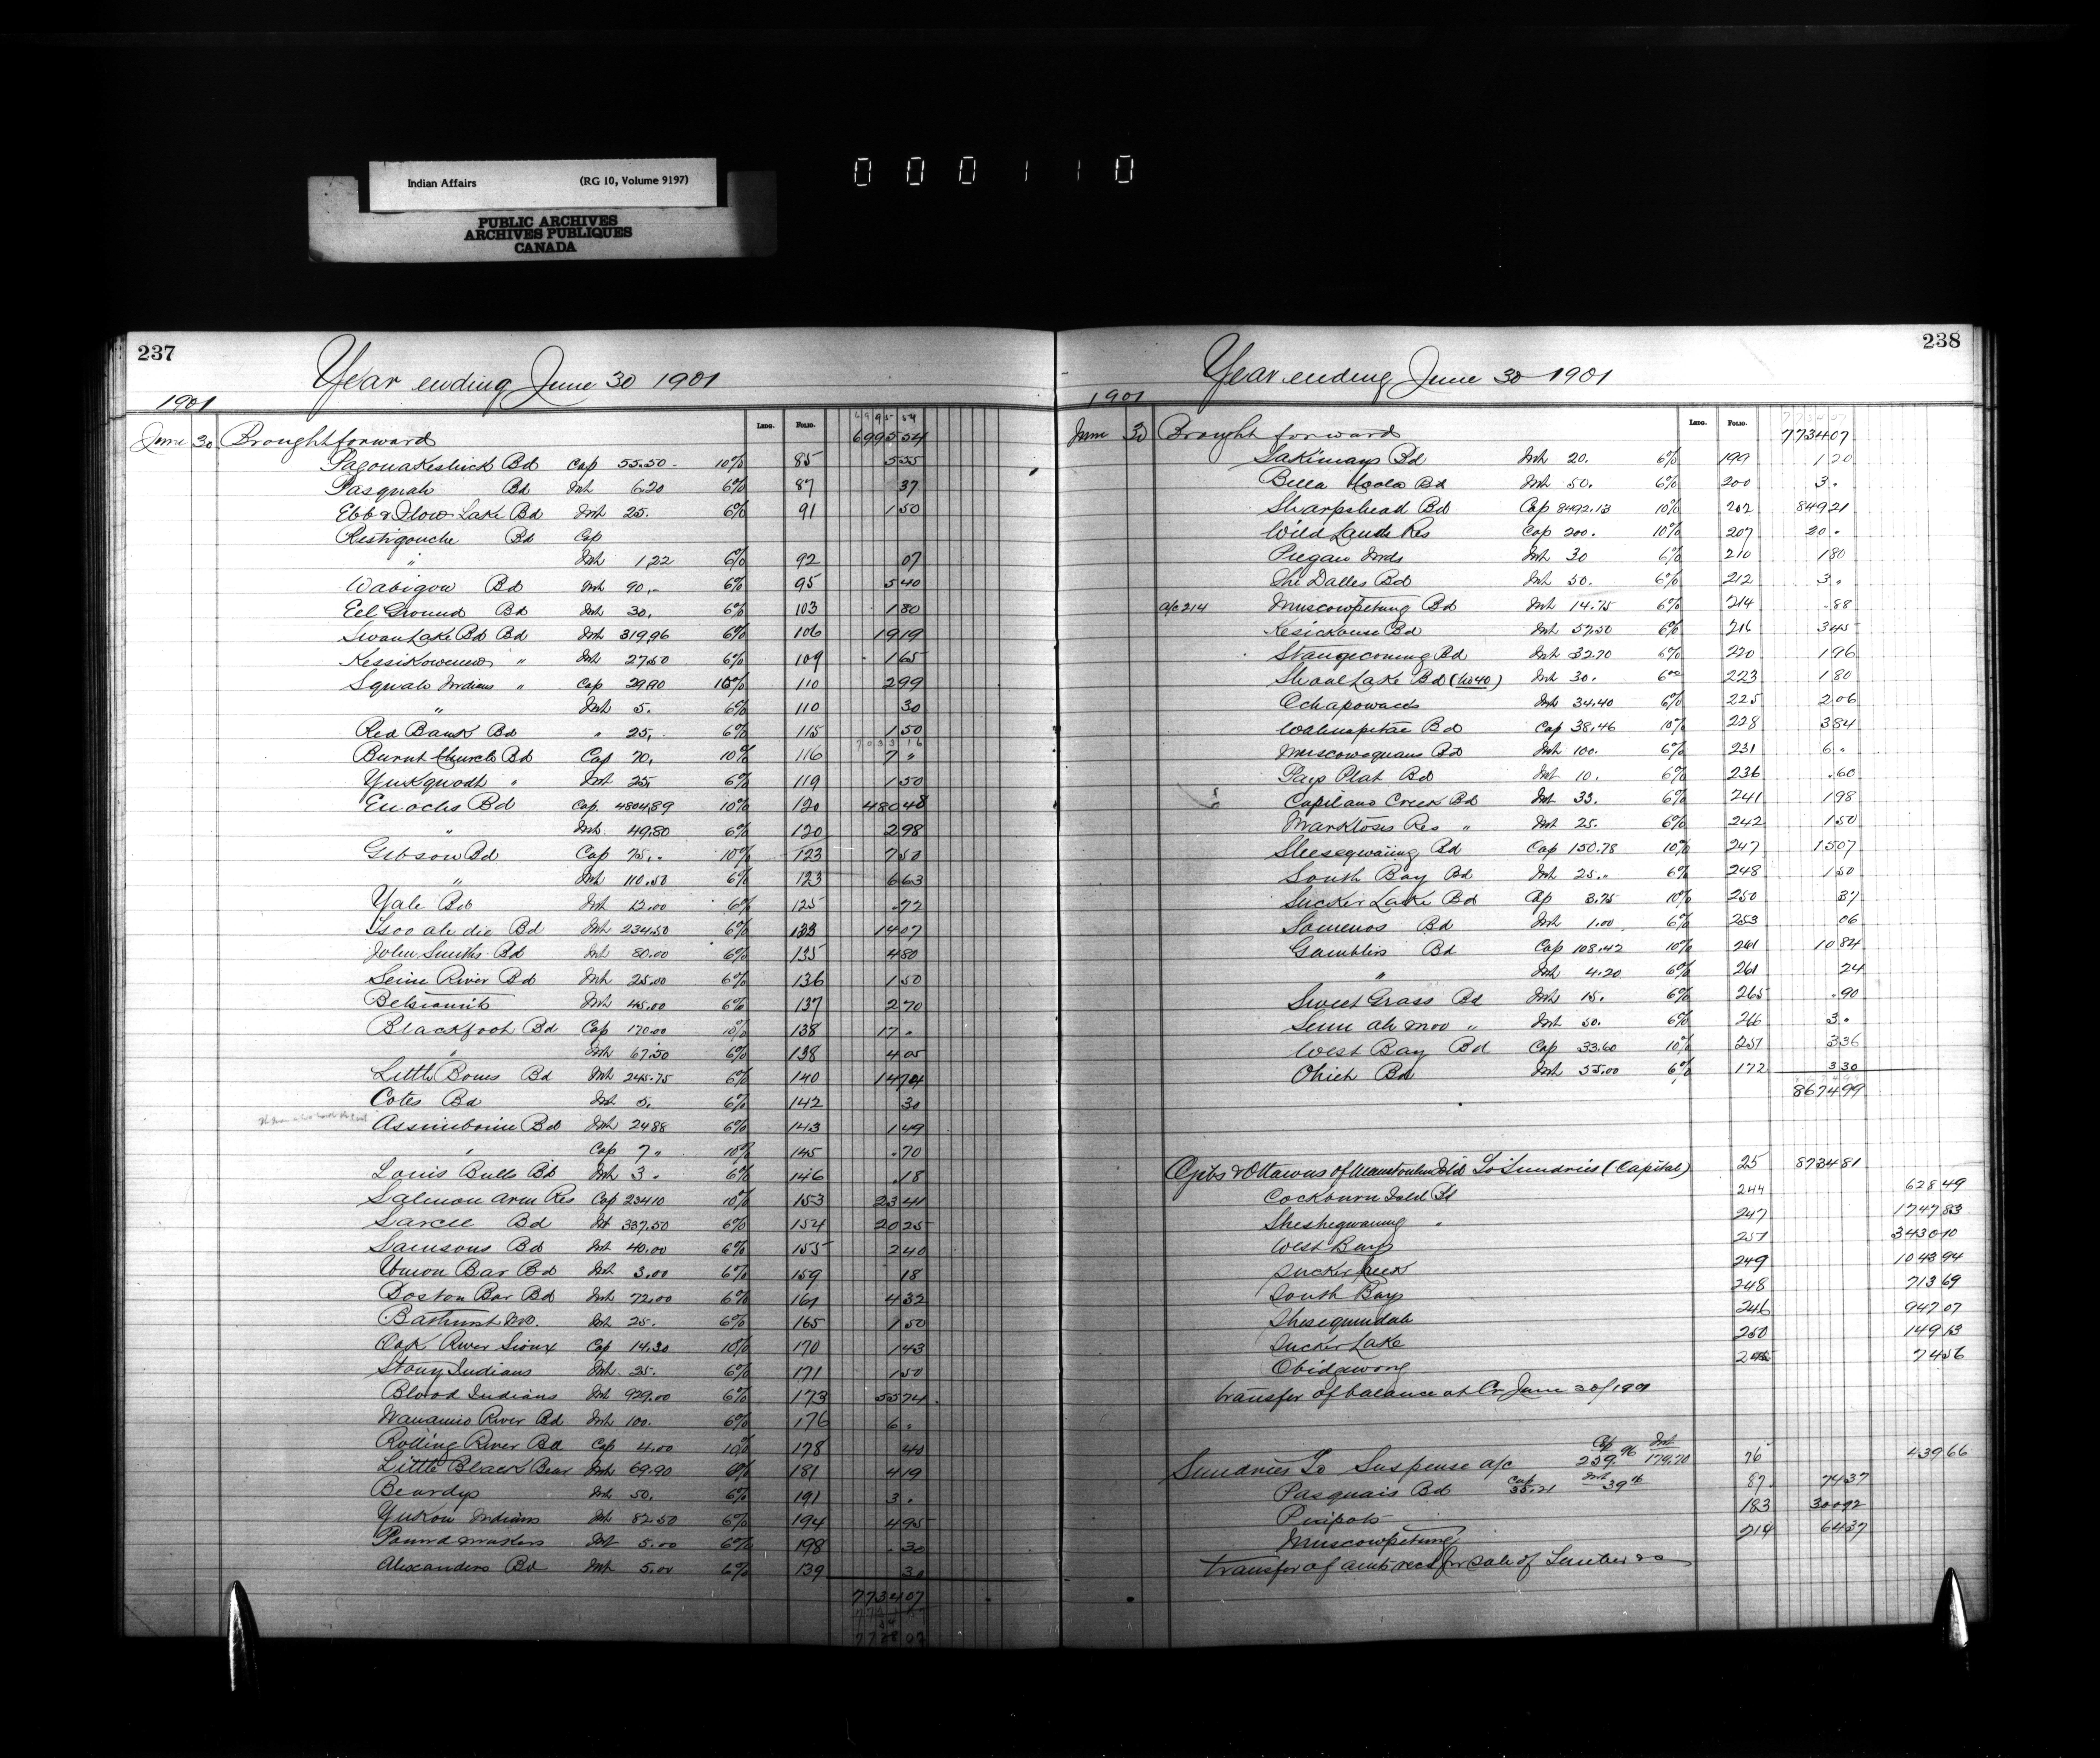 Indian Affairs (RG 10, Volume 9197)
PUBLIC ARCHIVES
ARCHIVES PUBLIQUES
CANADA
000110
237
Year ending June 30 1901
1901
LEDG. FOLIO.
6995 54
June 30 Brought forward 6995 54
Pagonakeshick Bd Cap 55.50 10% 85 5 55
Pasquah Bd Int 6.20 6% 87 37
Ebb & Flow Lake Bd Int 25. 6% 91 1 50
Restigouche Bd Cap
" Int 1.22 6% 92 07
Wabigow Bd Int 90.- 6% 95 5 40
Eel Ground Bd Int 30. 6% 103 1 80
Swan Lake Bd Bd Int 319.96 6% 106 19 19
Kessikowenew " Int 27.50 6% 109 1 65
Squah Indians " Cap 29.90 10% 110 2 99
" Int 5. 6% 110 30
Red Bank Bd " 25. 6% 115 1 50
7033 16
Burnt Church Bd Cap 70. 10% 116 7 "
Yukquaht " Int 25. 6% 119 1 50
Enochs Bd Cap. 4804.89 10% 120 480 48
" Int. 49.80 6% 120 2 98
Gibson Bd Cap 75.. 10% 123 7 50
" Int 110.50 6% 123 6 63
Yale Bd Int 12.00 6% 125 .72
Tsoo ah die Bd Int 234.50 6% 133 14 07
John Smiths Bd Int 80.00 6% 135 4 80
Seine River Bd Int 25.00 6% 136 1 50
Betsiamits Int 45.00 6% 137 2 70
Blackfoot Bd Cap 170.00 10% 138 17 .
" Int 67.50 6% 138 4 05
Little Bones Bd Int 245.75 6% 140 14 74
Cotes Bd Int 5. 6% 142 30
Assiniboine Bd Int 24 88 6% 143 1 49
" Cap 7 " 10% 145 .70
Louis Bulls Bd Int 3 . 6% 146 .18
Salmon Arm Res Cap 234 10 10% 153 23 41
Sarcee Bd Int 337.50 6% 154 20 25
Samsons Bd Int 40.00 6% 155 2 40
Union Bar Bd Int 3.00 6% 159 18
Boston Bar Bd Int 72.00 6% 161 4 32
Bathurst Int 25. 6% 165 1 50
Oak River Sioux Cap 14.30 10% 170 1 43
Stony Indians Int. 25. 6% 171 1 50
Blood Indians Int 929.00 6% 173 55 74
Nanaimo River Bd Int 100. 6% 176 6 .
Rolling River Bd Cap 4.00 10% 178 40
Little Black Bear Int 69.90 6% 181 4 19
Beardys Int 50. 6% 191 3 .
Yukon Indians Int 82.50 6% 194 4 95
Poundmakers Int 5.00 6% 198 .30
Alexanders Bd Int 5.00 6% 139 30
7734 07
238
Year ending June 30 1901
1901
LEDG. FOLIO.
June 30 Brought forward 7734 07
Sakimays Bd Int 20. 6% 199 1 20
Bella Coola Bd Int 50. 6% 200 3 .
Sharpshead Bd Cap 8492.13 10% 202 849 21
Wild Lands Res Cap 200. 10% 207 20 .
Piegan Inds Int 30 6% 210 1 80
The Dalles Bd Int 50. 6% 212 3 .
a/c 214 Muscowpetung Bd Int 14.75 6% 214 .88
Kesickouse Bd Int 57.50 6% 216 3 45
Stangecoming Bd Int 32.70 6% 220 1 96
Shoal Lake Bd (No 40) Int 30. 6% 223 1 80
Ochapowaces Int 34.40 6% 225 2 06
Wahnapitae Bd Cap 38.46 10% 228 3 84
Muscowequans Bd Int 100. 6% 231 6 .
Pays Plat Bd Int 10. 6% 236 .60
Capilano Creek Bd Int 33. 6% 241 1 98
Marktosis Res " Int 25. 6% 242 1 50
Shesegwaiing Bd Cap 150.78 10% 247 15 07
South Bay Bd Int 25.. 6% 248 1 50
Sucker Lake Bd Cap 3.75 10% 250 37
Somenos Bd Int 1.00 6% 253 06
Gamblers Bd Cap 108.42 10% 261 10 84
" Int 4.20 6% 261 24
Sweet Grass Bd Int 15. 6% 265 .90
Semi ah moo " Int 50. 6% 266 3 .
West Bay Bd Cap 33.60 10% 251 3 36
Ohiet Bd Int 55.00 6% 172 3 30
8674 99
Ojibs & Ottawas of Manitoulin Isld To Sundries (Capital) 25 8734 81
Cockburn Island Bd 244 628 49
Sheshegwaning " 247 1747 83
West Bay 251 3430 10
Sucker Creek 249 1043 94
South Bay 248 713 69
Sheseguindah 246 947 07
Sucker Lake 250 149 13
Obidgwong 245 74 56
transfer of balance at Cr June 30/1901
Cap Int
Sundries To Suspense a/c 259.96 179.70 76 439 66
Pasquais Bd Cap 35.21 Int 39 16 87 74 37
Piapots 183 300 92
Muscowpetung 214 64 37
transfer of amts recd for sale of Timber &c